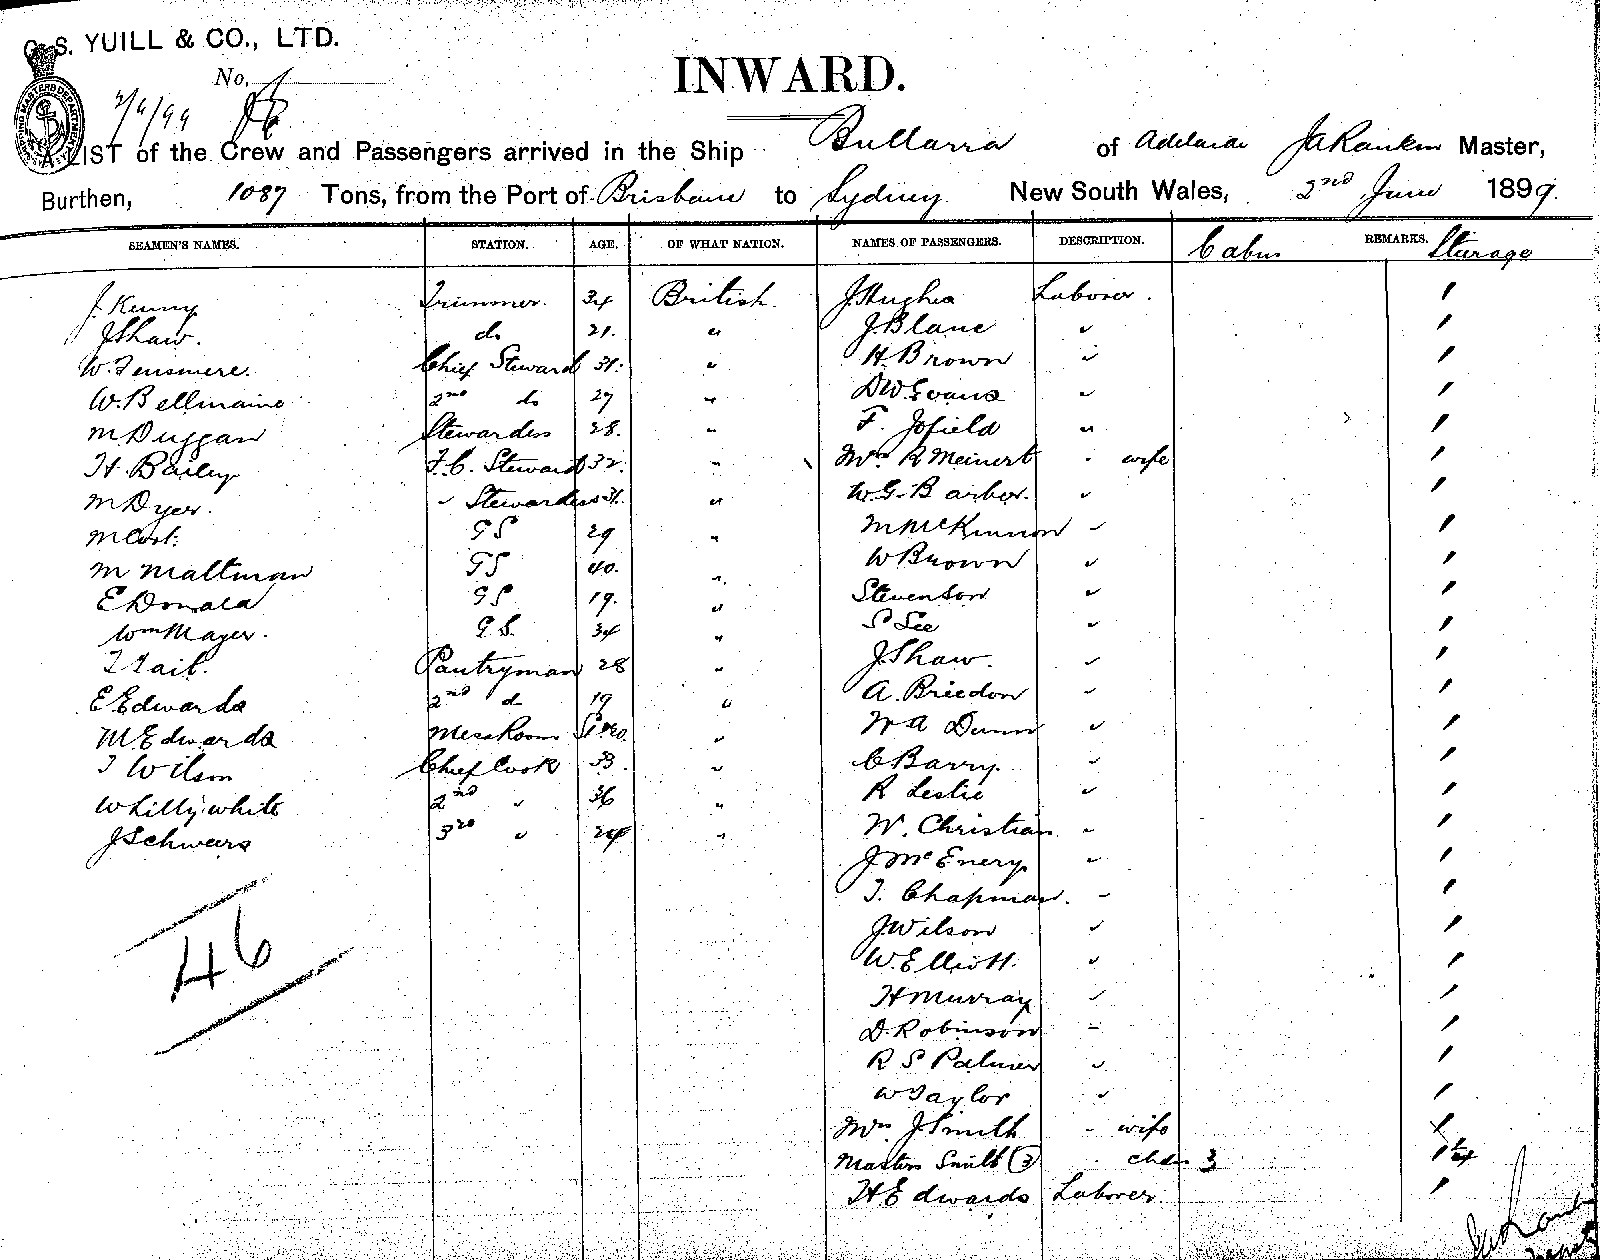 G. S. YUILL & CO., LTD.
No.
2/6/99
INWARD.
A LIST of the Crew and Passengers arrived in the Ship Bullarra of Adelaide JA Rankin Master,
Burthen, 1087 Tons, from the Port of Brisbane to Sydney New South Wales, 2nd June 1899.
SEAMEN'S NAMES. STATION. AGE. OF WHAT NATION. NAMES OF PASSENGERS. DESCRIPTION. Cabin REMARKS. Sturage
J. Kenny Trimmer. 34 British J Hughes Laborer. ′
J Shaw. do 21. " J. Blane " ′
W. Tensmere. Chief Steward 31. " H. Brown " ′
W. Bellmaine 2nd do 27 " D W Evans " ′
M Duggan Stewardess 28. " F. Jofield " ′
H. Bailey F.C. Steward 32. " Mrs R Meinert " wife ′
M Dyer. " Stewardess 31. " W. G. Barber. " ′
M GS 29 " M McKinnon " ′
M Maltman GS 40. " W Brown " ′
E Donald GS 19. " Stevenson " ′
Wm Mayer. G.S. 34 " S See " ′
T Tait. Pantryman 28 " J. Shaw. " ′
E Edwards 2nd do 19 " A. Breedon " ′
M. Edwards Mess Room " W A Dunn " ′
T Wilson Chief Cook 33. " C Barry. " ′
W Lillywhite 2nd " 36 " R Leslie " ′
J Schweers 3rd " 24 " W. Christian " ′
J. McEnery " ′
T. Chapman. " ′
46
J. Wilson " ′
W. Elliott. " ′
H Murray " ′
D. Robinson " ′
R S Palmer " ′
W Taylor " ′
Mrs J Smith " wife
Masters Smith (3) " chdn 3
H Edwards Laborer ′